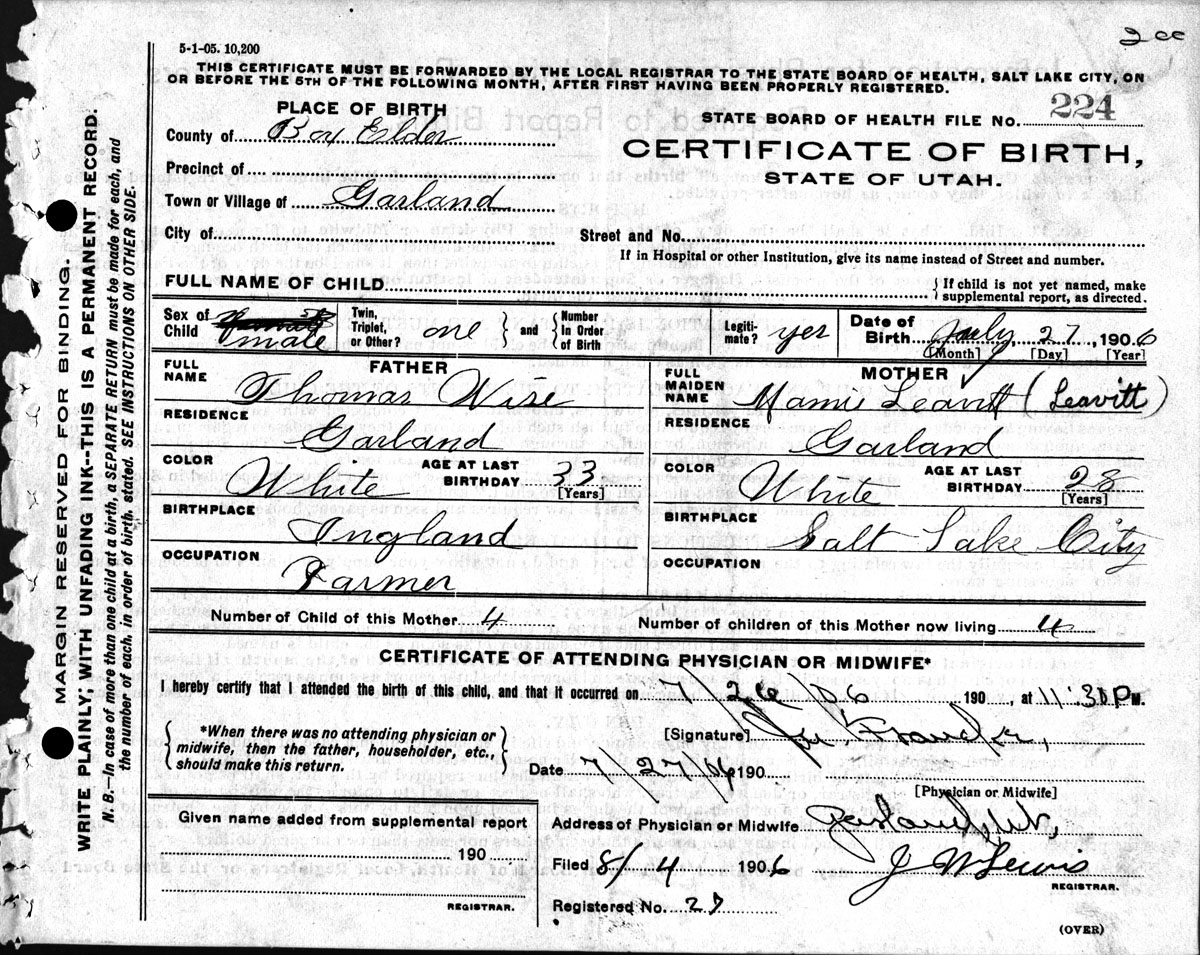 2
5-1-05. 10,200
THIS CERTIFICATE MUST BE FORWARDED BY THE LOCAL REGISTRAR TO THE STATE BOARD OF HEALTH, SALT LAKE CITY, ON
OR BEFORE THE 5TH OF THE FOLLOWING MONTH, AFTER FIRST HAVING BEEN PROPERLY REGISTERED.
PLACE OF BIRTH
STATE BOARD OF HEALTH FILE NO. 224
County of Box Elder
CERTIFICATE OF BIRTH,
STATE OF UTAH.
Precinct of
Town or Village of Garland
City of
Street and No.
If in Hospital or other Institution, give its name instead of Street and number.
FULL NAME OF CHILD
If child is not yet named, make
supplemental report, as directed.
Sex of Child male
Twin, Triplet, or Other? one and Number In Order of Birth
Legiti-mate? yes
Date of Birth July 27, 1906
[Month] [Day] [Year]
FATHER
FULL NAME Thomas Wise
RESIDENCE Garland
COLOR White AGE AT LAST BIRTHDAY 33
[Years]
BIRTHPLACE England
OCCUPATION Farmer
MOTHER
FULL MAIDEN NAME Mamie Leavitt (Leavitt)
RESIDENCE Garland
COLOR White AGE AT LAST BIRTHDAY 28
[Years]
BIRTHPLACE Salt Lake City
OCCUPATION
Number of Child of this Mother 4
Number of children of this Mother now living 4
CERTIFICATE OF ATTENDING PHYSICIAN OR MIDWIFE*
I hereby certify that I attended the birth of this child, and that it occurred on 7/26/06 190 , at 11:30 P M.
*When there was no attending physician or
midwife, then the father, householder, etc.,
should make this return.
[Signature]
Date 7/27/06 190
[Physician or Midwife]
Given name added from supplemental report
190
REGISTRAR.
Address of Physician or Midwife Garland, Ut,
Filed 8/4 1906 J W Lewis
REGISTRAR.
Registered No. 27
(OVER)
MARGIN RESERVED FOR BINDING.
WRITE PLAINLY, WITH UNFADING INK--THIS IS A PERMANENT RECORD.
N. B.—In case of more than one child at a birth, a SEPARATE RETURN must be made for each, and
the number of each, in order of birth, stated. SEE INSTRUCTIONS ON OTHER SIDE.